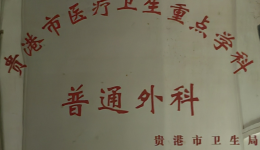 贵港市医疗卫生重点学科
普通外科
贵港市卫生局